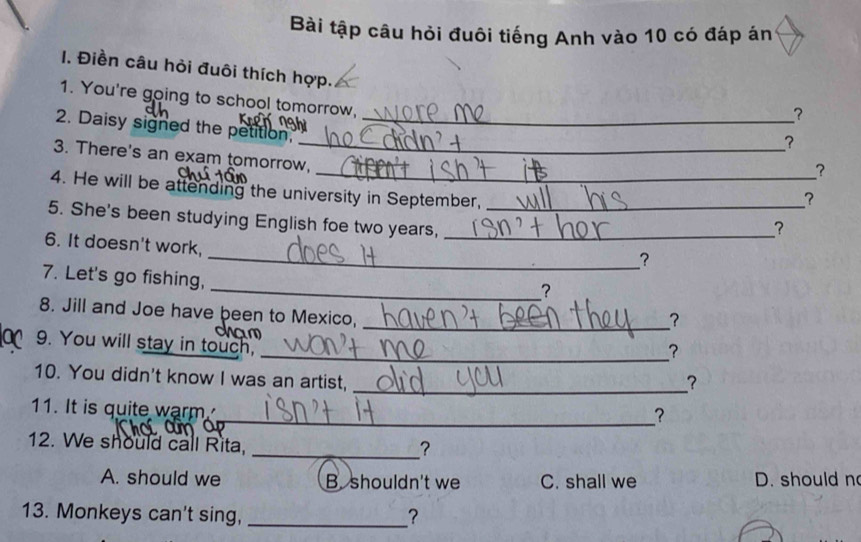 Bài tập câu hỏi đuôi tiếng Anh vào 10 có đáp án
I. Điền câu hỏi đuôi thích hợp.
1. You're going to school tomorrow, were me ?
dh kiến nghị
2. Daisy signed the petition, he didn't ?
3. There's an exam tomorrow, isn't it ?
chú tâm
4. He will be attending the university in September, will his ?
5. She's been studying English foe two years, isn't her ?
6. It doesn't work, does it ?
7. Let's go fishing, ?
8. Jill and Joe have been to Mexico, haven't been they ?
chạm
9. You will stay in touch, won't me ?
10. You didn't know I was an artist, did you ?
11. It is quite warm, isn't it ?
khá ấm áp
12. We should call Rita, ?
A. should we B. shouldn't we C. shall we D. should no
13. Monkeys can't sing, ?